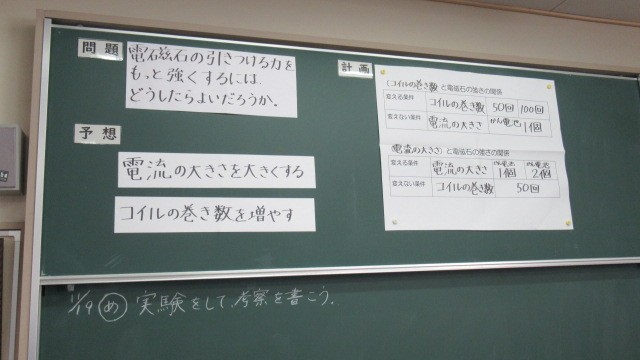 問題
電磁石の引きつける力を
もっと強くするには、
どうしたらよいだろうか。
予想
電流の大きさを大きくする
コイルの巻き数を増やす
計画
(コイルの巻き数)と電磁石の強さの関係
変える条件 コイルの巻き数 50回 100回
変えない条件 電流の大きさ かん電池 1個
(電流の大きさ)と電磁石の強さの関係
変える条件 電流の大きさ かん電池 1個 かん電池 2個
変えない条件 コイルの巻き数 50回
11/19 め 実験をして、考察を書こう。